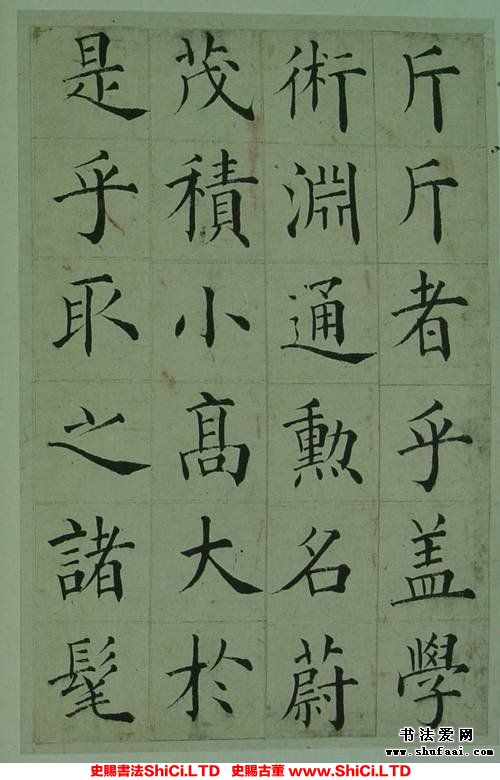 斤斤者乎盖學
術淵通勲名蔚
茂積小髙大於
是乎取之諸髦
书法爱网
www.shufaai.com
史賜書法ShiCi.LTD 史賜古董 www.ShiCi.LTD